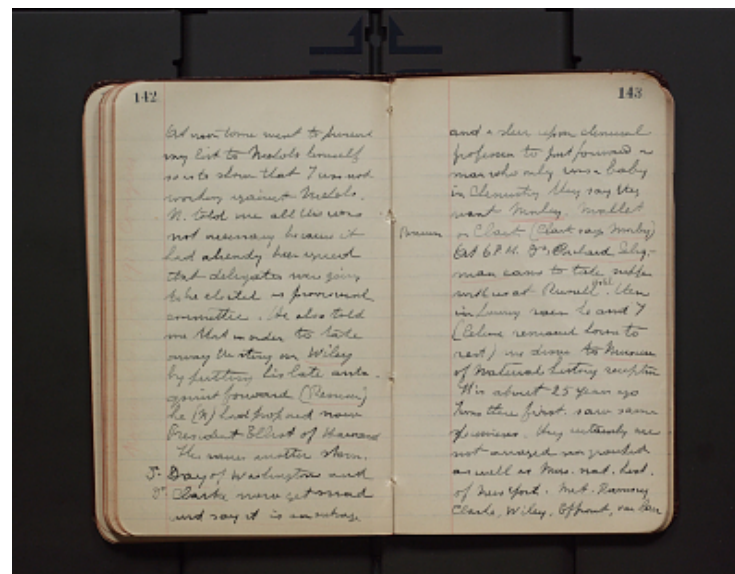 142
At noon time went to present
my list to Nichols himself
so as to show that I was not
working against Nichols.
N. told me all this was
not necessary because it
had already been agreed
that delegates were going
to be elected as provisional
committee. He also told
me that in order to take
away the sting on Wiley
by putting his late anta-
gonist forward (Remsen)
he (N) had proposed now
President Elliot of Harvard
This raises another storm.
Day of Washington and
Clarke now get mad
and say it is an outrage
143
and a slur upon chemical
profession to put forward a
man who only was a baby
in Chemistry. They say they
want Morley, Mallet
or Clark (Clark says Morley)
Remsen
At 6 P.M. Dr. Richard Selig-
man came to take supper
with us at Russell
in Luray room he and I
(Celine remained home to
rest) we drove to Museum
of Natural history reception
It is about 25 years ago
I was there first. saw same
specimens. They certainly are
not arranged nor grouped
as well as Mus. nat. hist.
of New York. Met Ramsay
Clarke, Wiley, Effront, van